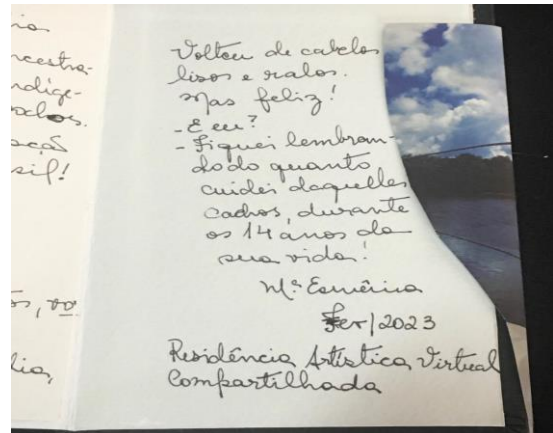 Voltou de cabelos
lisos e ralos.
Mas feliz!
- E eu?
- Fiquei lembran-
do do quanto
cuidei daqueles
cachos, durante
os 14 anos da
sua vida!
Mª Esmênia
Fev/2023
Residência Artística Virtual
Compartilhada
ncestra-
ndíge-
sil!